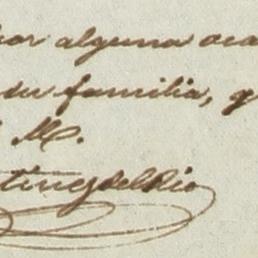 por alguna oca
su familia, q
M.
tinez del Rio